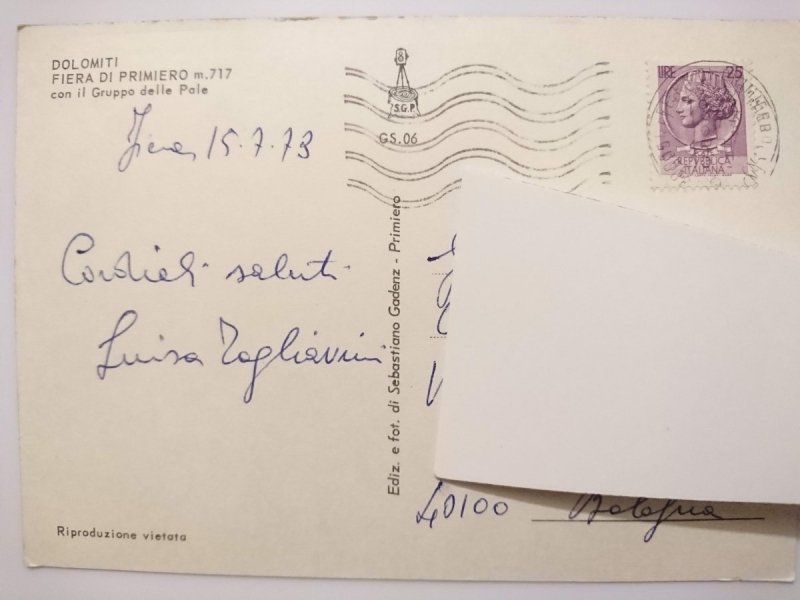 DOLOMITI
FIERA DI PRIMIERO m.717
con il Gruppo delle Pale
Fiera 15.7.73
Cordiali saluti
Luisa Tagliavini
Riproduzione vietata
Ediz. e fot. di Sebastiano Gadenz - Primiero
8
S.G.P.
GS.06
LIRE 25
REPVBBLICA
ITALIANA
40100 Bologna